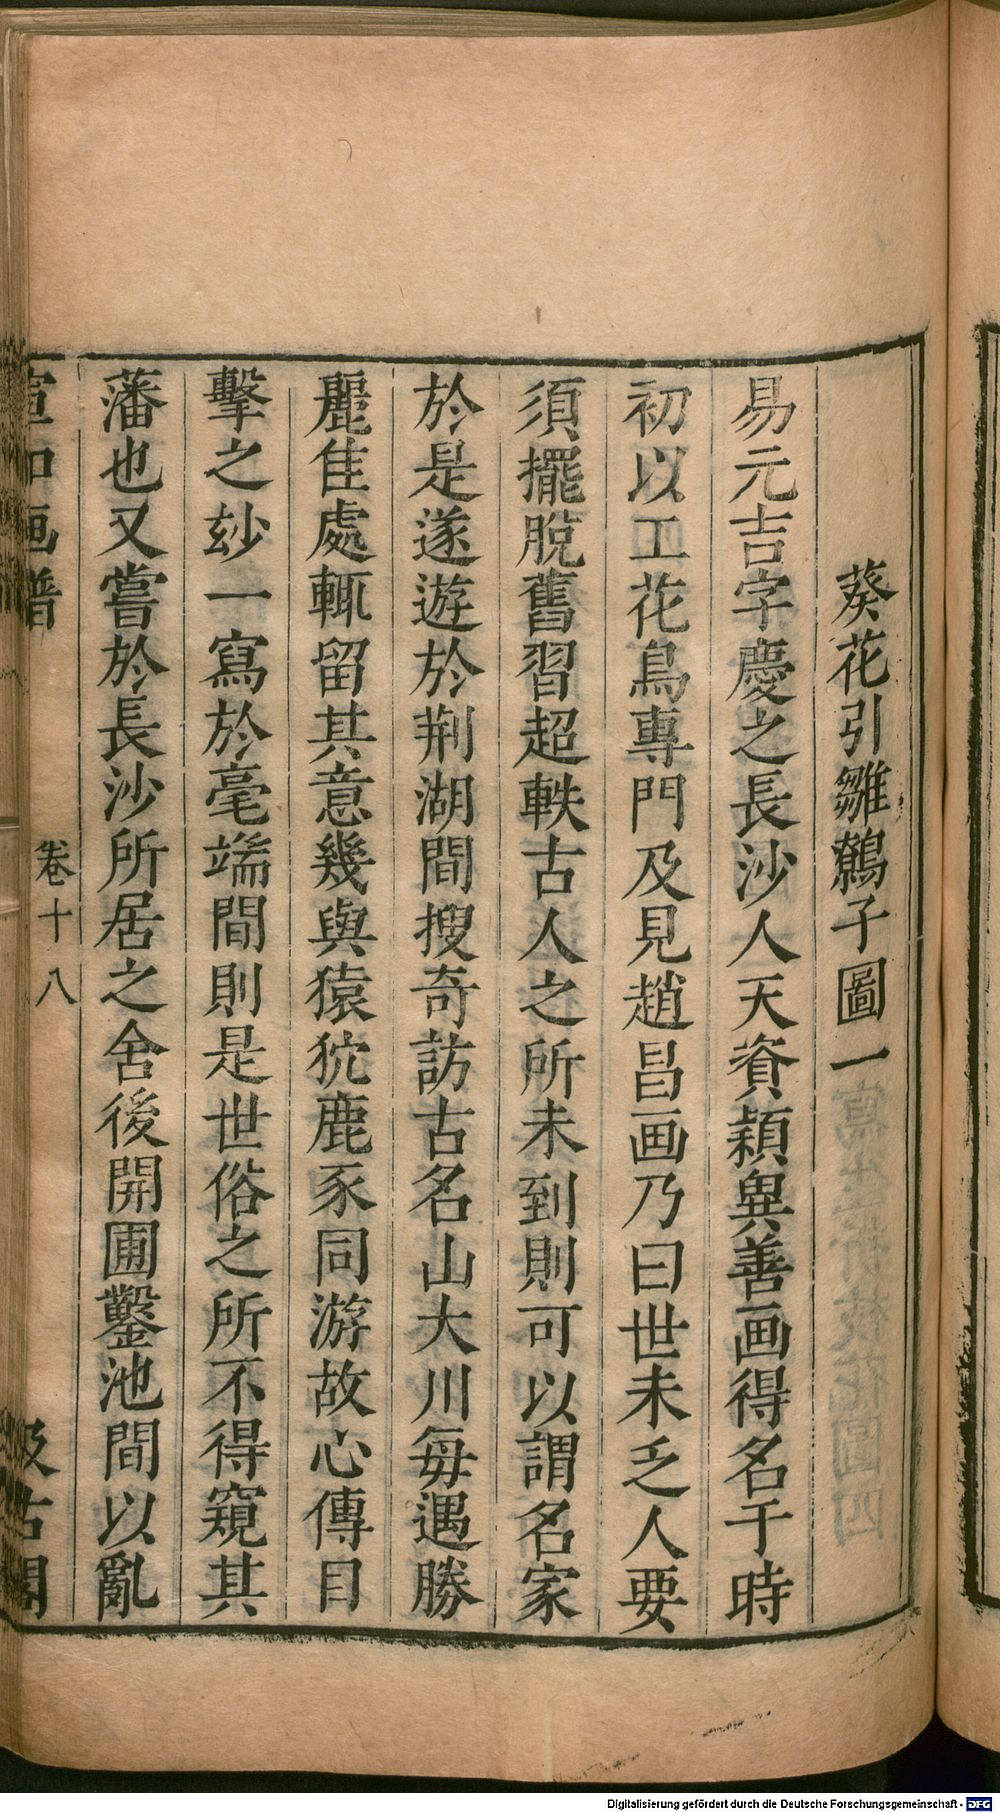 葵花引雛鷯子圖一
易元吉字慶之長沙人天資穎異善画得名于時
初以工花鳥專門及見趙昌画乃曰世未乏人要
須擺脫舊習超軼古人之所未到則可以謂名家
於是遂遊於荆湖間搜奇訪古名山大川每遇勝
麗佳處輒留其意幾與猿狖鹿豕同游故心傳目
擊之玅一寫於毫端間則是世俗之所不得窺其
藩也又嘗於長沙所居之舍後開圃鑿池間以亂
宣和画譜
卷十八
汲古閣
Digitalisierung gefördert durch die Deutsche Forschungsgemeinschaft - DFG